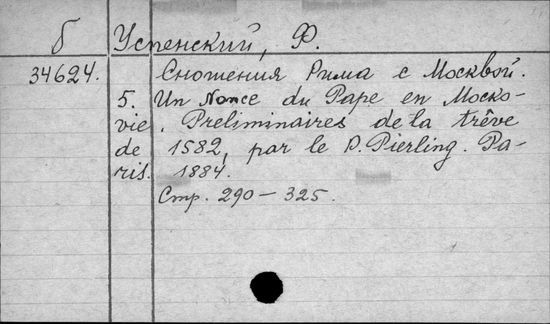 б Успенский, Ф.
34624. Сношения Рима с Москвой.
5. Un Nonce du Pape en Moско-
vie. Preliminaires de la trêve
de 1582, par le P. Pierling. Pa-
ris. 1884.
Стр. 290 – 325.